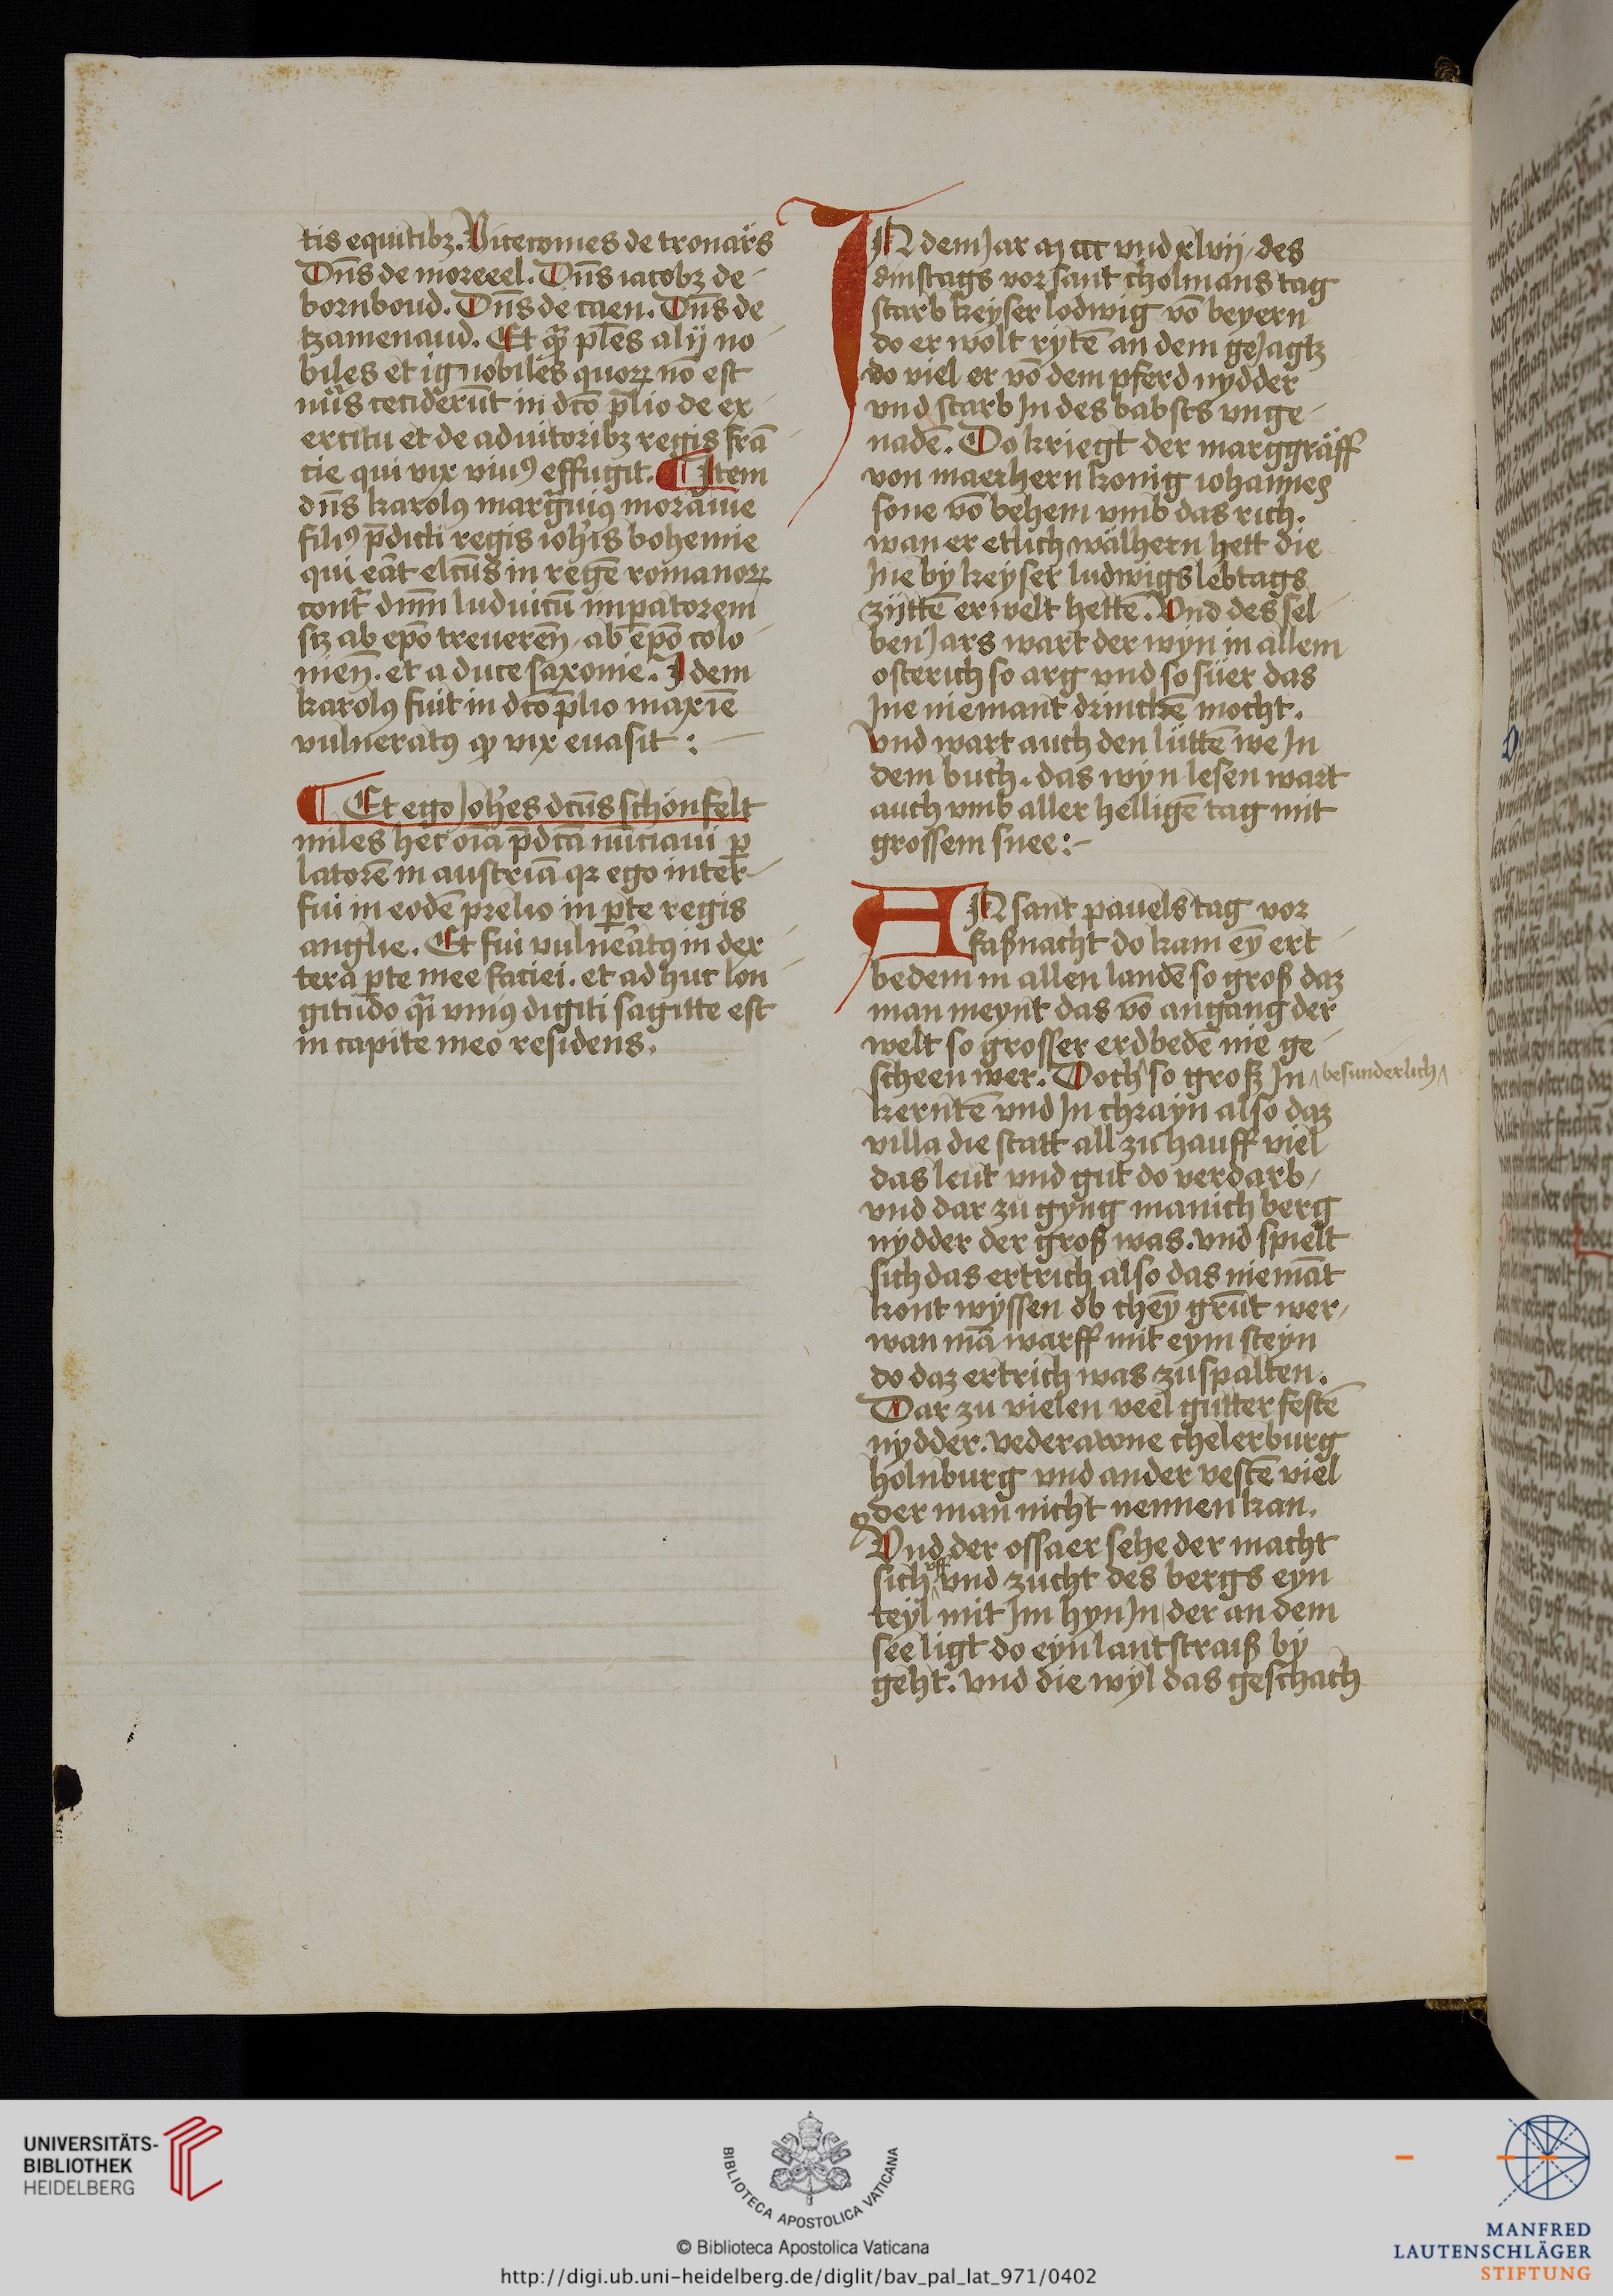 tis equitibꝫ. Vicecomes de tronars
Dn̄s de moreeel. Dn̄s iacobꝫ de
bornboud. Dn̄s de caen. Dn̄s de
tzamenaud. Et qꝫ pl̄es alij no
biles et ignobiles quoꝝ nō est
nūs ceciderūt in dc̄o p̄lio de ex
ercitu et de adiutoribꝫ regis frā
cie qui vix viuꝰ effugit. ¶ Item
dn̄s karolꝰ margͣuiꝰ morauie
filiꝰ p̄dicti regis ioh̄is bohemie
qui eāt elcūs in regē romanoꝝ
contͣ dn̄m luduicū imꝑatorem
sꝫ ab ep̄o treuereñ. ab ep̄o colo
nieñ. et a duce saxonie. Idem
karolꝰ fuit in dc̄o p̄lio maxīe
vulneratꝰ ꝙ vix euasit :
¶ Et ego Joh̄es dcūs schönfelt
miles hec oīa p̄dcā nūciaui ꝑ
latorē in austriā qꝛ ego inter
fui in eodē prelio in ꝑte regis
anglie. Et fui vulneratꝰ in dex
tera ꝑte mee faciei. et adhuc lon
gitudo qͣi vniꝰ digiti sagitte est
in capite meo residens.
IN dem Jar m ccc vnd xlvij des
dinstags vor sant cholmans tag
starb keyser lodwig vō beyern
do er wolt rytē an dem geJagtz
do viel er vō dem pferd nydder
vnd starb In des babsts vnge
nadē. Do kriegt der marggräff
von maerhern konig iohannes
sone vō behem vmb das rich.
wan er etlich wälhern hett die
Ine by keyser ludwigs lebtags
zijttē erwelt hettē. Vnd des sel
ben Jars wart der wyn in allem
osterich so arg vnd so süer das
Ine niemant drinckē mocht.
vnd wart auch den lüttē we In
dem buch. das wyn lesen wart
auch vmb aller helligē tag mit
grossem snee :
AN sant pauels tag vor
faßnacht do kam eȳ ert
bedem in allen landē so groß daz
man meynt das vō angang der
welt so grosser erdbedē nie ge
scheen wer. Doch so groß In besunderlich
kerntē vnd In chrayn also daz
villa die statt all zu hauff viel
das leut vnd gut do verdarb
vnd dar zu gyng manich berg
nydder der groß was. vnd spielt
sich das ertrich also das niemāt
kont wyssen ob cheȳ grūt wer
wan mā warff mit eym steyn
do daz ertrich was zuspalten.
Dar zu vielen veel gutter festē
nydder. vederawne chelerburg
holnburg vnd ander vestē viel
der man nicht nennen kan.
Vnd der ossaer sehe der macht
sich vff vnd zucht des bergs eyn
teyl mit Im hyn In der an dem
see ligt do eyn lantstraiß by
geht. vnd die wyl das geschach
UNIVERSITÄTS-
BIBLIOTHEK
HEIDELBERG
BIBLIOTECA APOSTOLICA VATICANA
© Biblioteca Apostolica Vaticana
http://digi.ub.uni-heidelberg.de/diglit/bav_pal_lat_971/0402
MANFRED
LAUTENSCHLÄGER
STIFTUNG